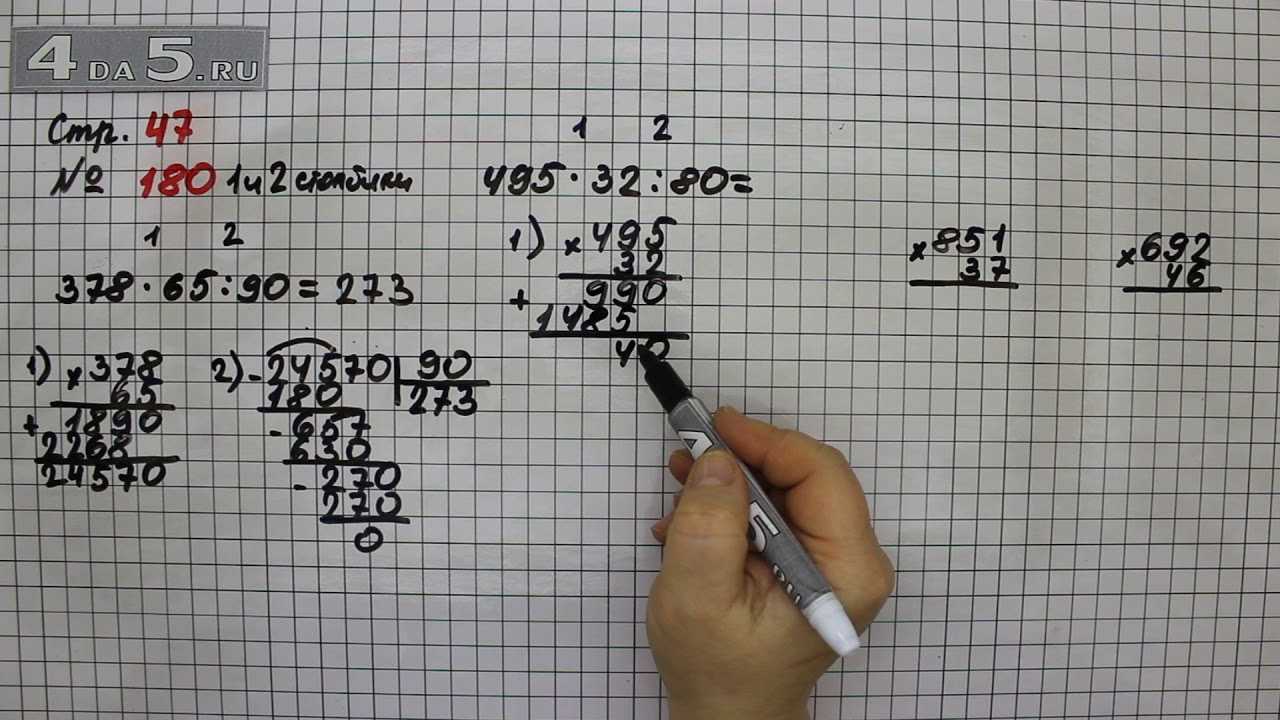 4DA5.RU
Стр. 47
№ 180 1 и 2 столбики
1 2
378 · 65 : 90 = 273
1) × 378
65
+ 1890
2268
24570
2) - 24570 90
180 273
- 657
630
- 270
270
0
1 2
495 · 32 : 80 =
1) × 495
32
+ 990
1485
40
× 851
37
× 692
46